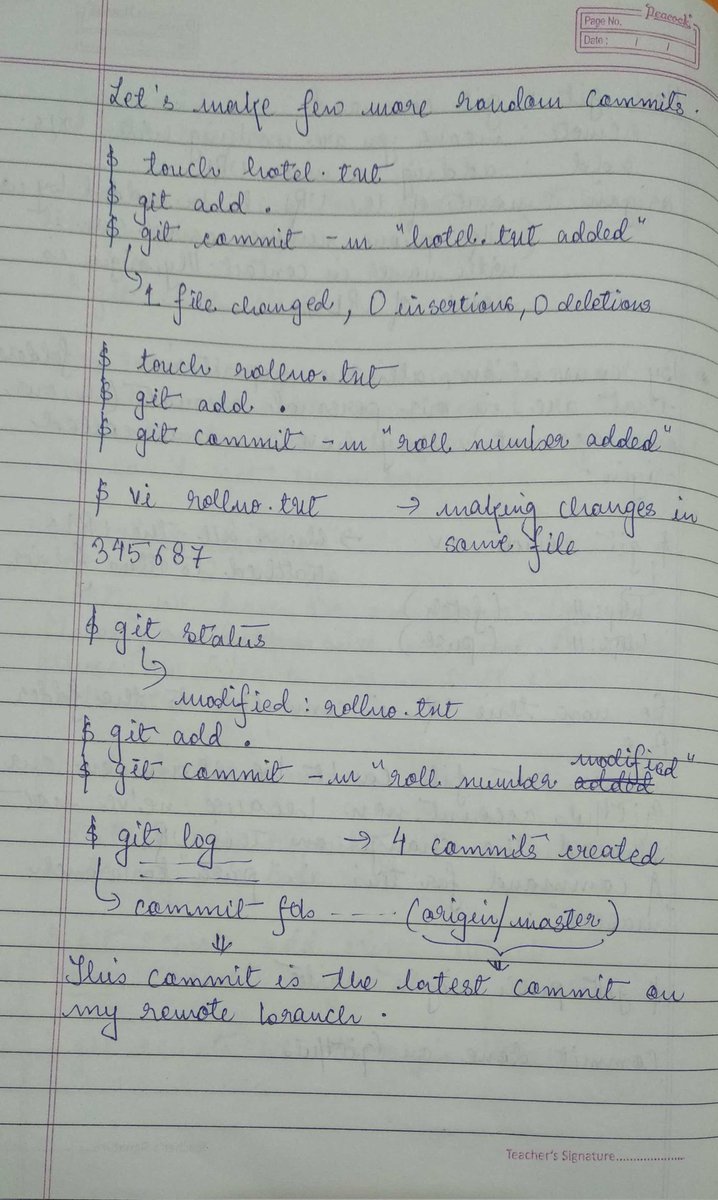 Peacock
Page No.
Date : / /
Let's make few more random commits.
$ touch hotel.txt
$ git add .
$ git commit -m "hotel.txt added"
↳ 1 file changed, 0 insertions, 0 deletions
$ touch rollno.txt
$ git add .
$ git commit -m "roll number added"
$ vi rollno.txt → making changes in
same file
345687
$ git status
↳ modified : rollno.txt
$ git add .
$ git commit -m "roll number modified"
$ git log → 4 commits created
↳ commit fdo ----- (origin/master)
This commit is the latest commit on
my remote branch.
Teacher's Signature